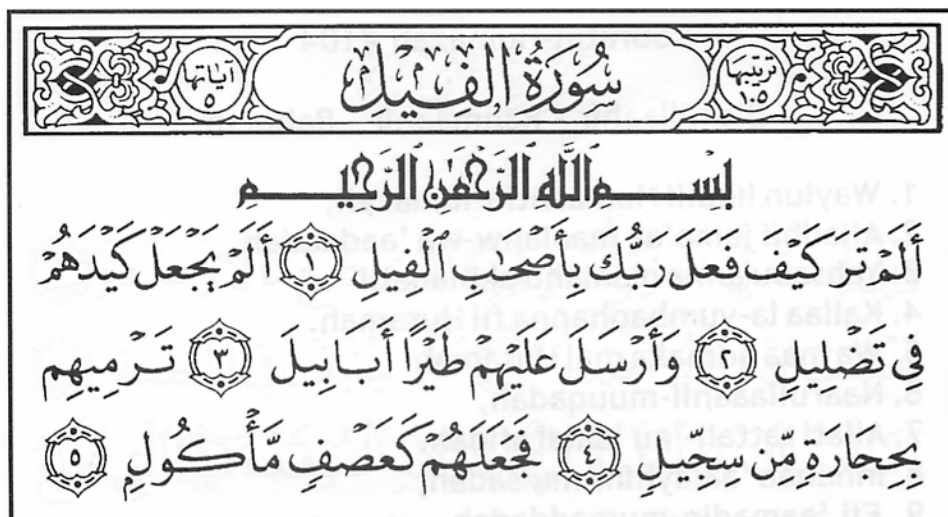 ترتيبها ١٠٥
سُورَةُ الْفِيلِ
آياتها ٥
بِسْمِ ٱللَّهِ ٱلرَّحْمَٰنِ ٱلرَّحِيمِ
أَلَمْ تَرَ كَيْفَ فَعَلَ رَبُّكَ بِأَصْحَٰبِ ٱلْفِيلِ ١ أَلَمْ يَجْعَلْ كَيْدَهُمْ
فِي تَضْلِيلٍ ٢ وَأَرْسَلَ عَلَيْهِمْ طَيْرًا أَبَابِيلَ ٣ تَرْمِيهِم
بِحِجَارَةٍ مِّن سِجِّيلٍ ٤ فَجَعَلَهُمْ كَعَصْفٍ مَّأْكُولٍ ٥